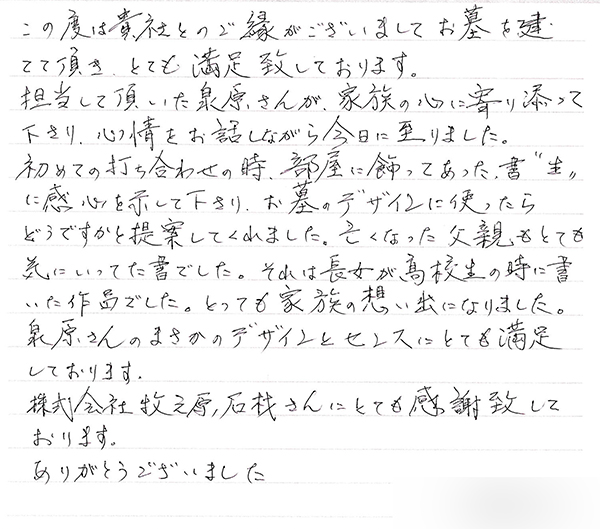 この度は貴社とのご縁がございましてお墓を建
てて頂き、とても満足致しております。
担当して頂いた泉原さんが、家族の心に寄り添って
下さり、心情をお話しながら今日に至りました。
初めての打ち合わせの時、部屋に飾ってあった、書"生"
に感心を示して下さり、お墓のデザインに使ったら
どうですかと提案してくれました。亡くなった父親もとても
気にいってた書でした。それは長女が高校生の時に書
いた作品でした。とっても家族の想い出になりました。
泉原さんのまさかのデザインとセンスにとても満足
しております。
株式会社牧之原石材さんにとても感謝致して
おります。
ありがとうございました